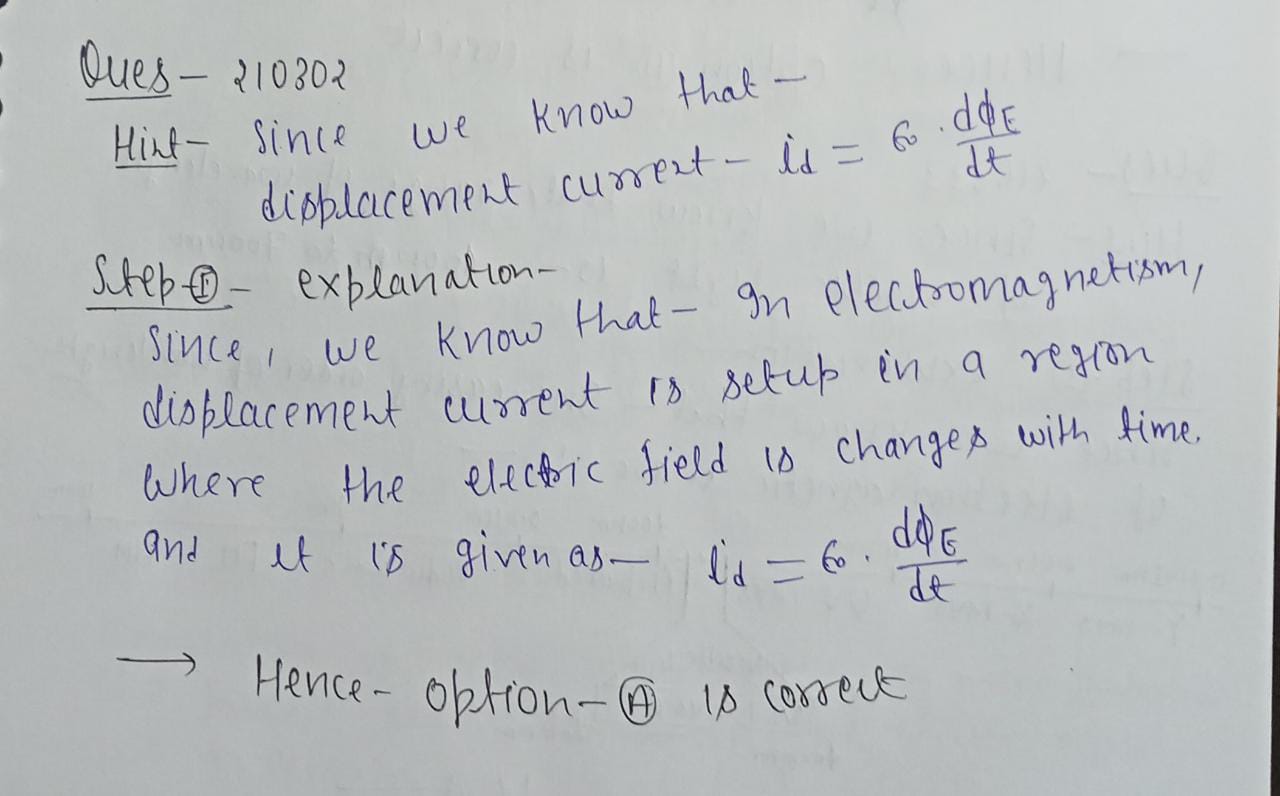 Ques - 210302
Hint - Since we know that -
displacement current - id = ε0 . dϕE/dt
Step ① - explanation -
Since, we know that - In electromagnetism,
displacement current is setup in a region
where the electric field is changes with time.
and it is given as - id = ε0 . dϕE/dt
→ Hence - option - Ⓐ is correct